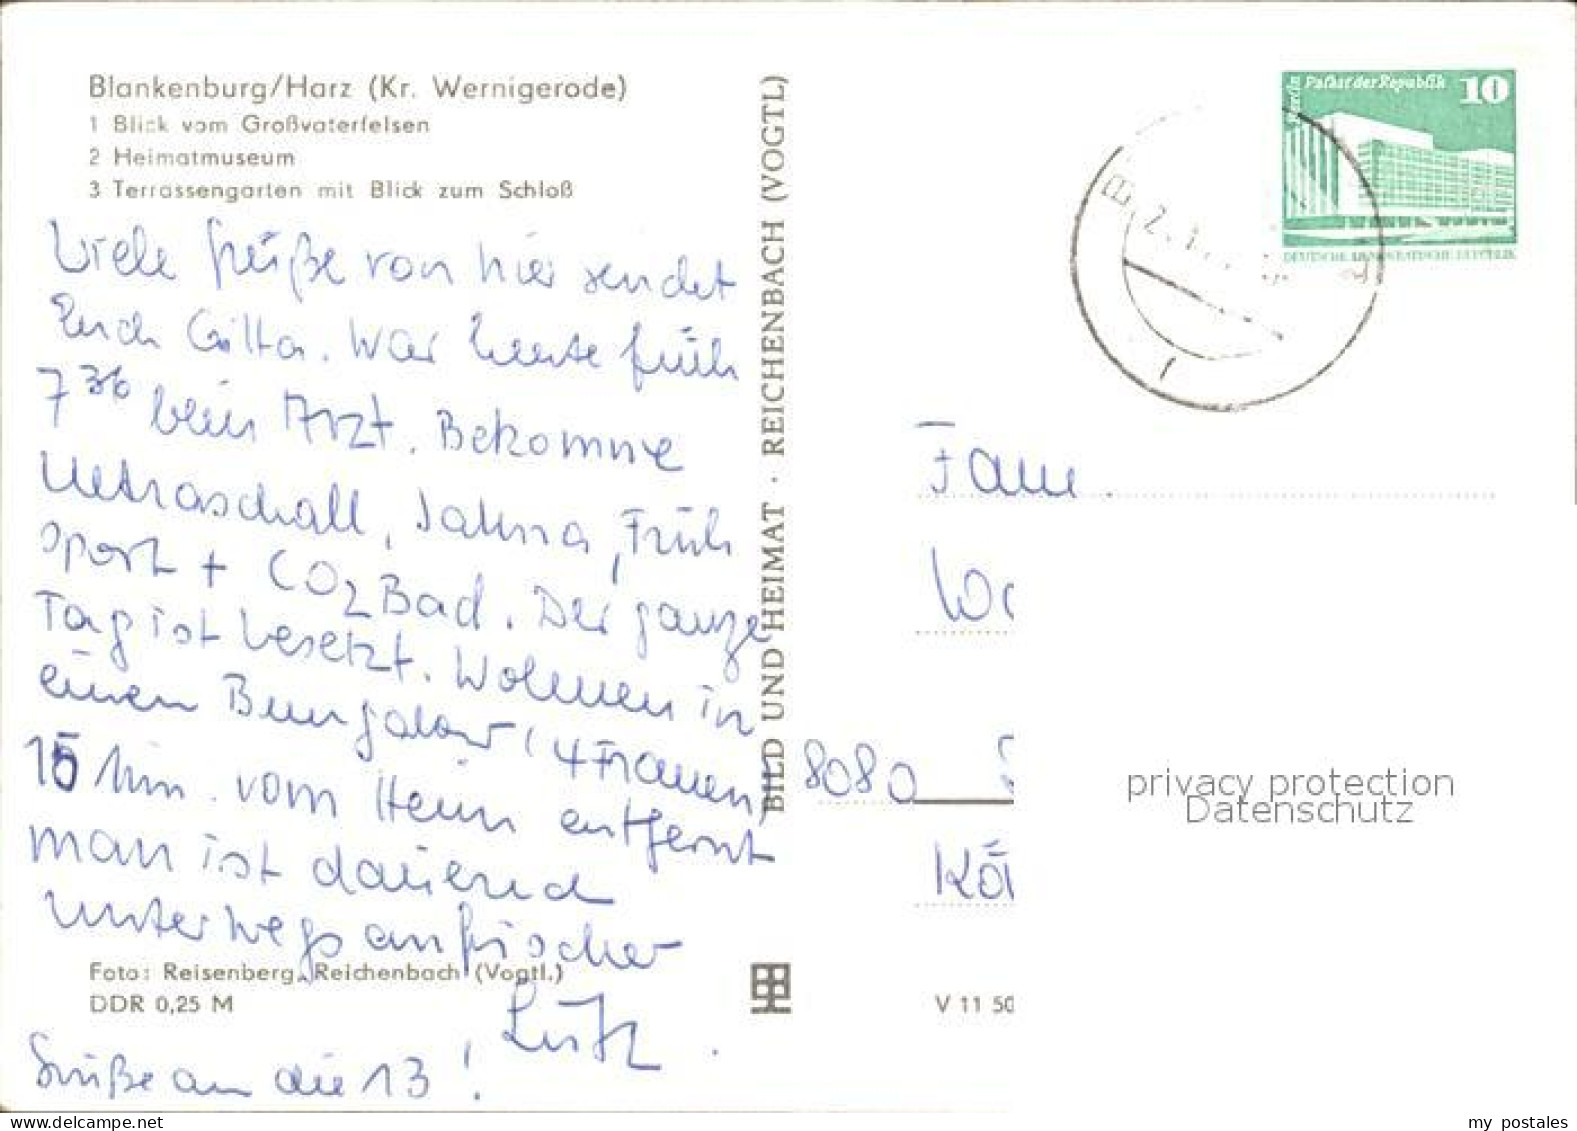 Blankenburg/Harz (Kr. Wernigerode)
1 Blick vom Großvaterfelsen
2 Heimatmuseum
3 Terrassengarten mit Blick zum Schloß
Viele Grüße von hier sendet
Euch Gitta. War heute früh
7³⁰ beim Arzt. Bekomme
Ultraschall, Sauna, Früh
sport + CO2 Bad. Der ganze
Tag ist besetzt. Wohnen in
einen Bungalow (4 Frauen)
15 Min. vom Heim entfernt
man ist dauernd
unterwegs an frischer
Luft.
Grüße an die 13!
Foto: Reisenberg, Reichenbach (Vogtl.)
DDR 0,25 M
BILD UND HEIMAT · REICHENBACH (VOGTL)
V 11 50
Berlin Palast der Republik 10
DEUTSCHE DEMOKRATISCHE REPUBLIK
Fam.
8080
privacy protection
Datenschutz
my postales